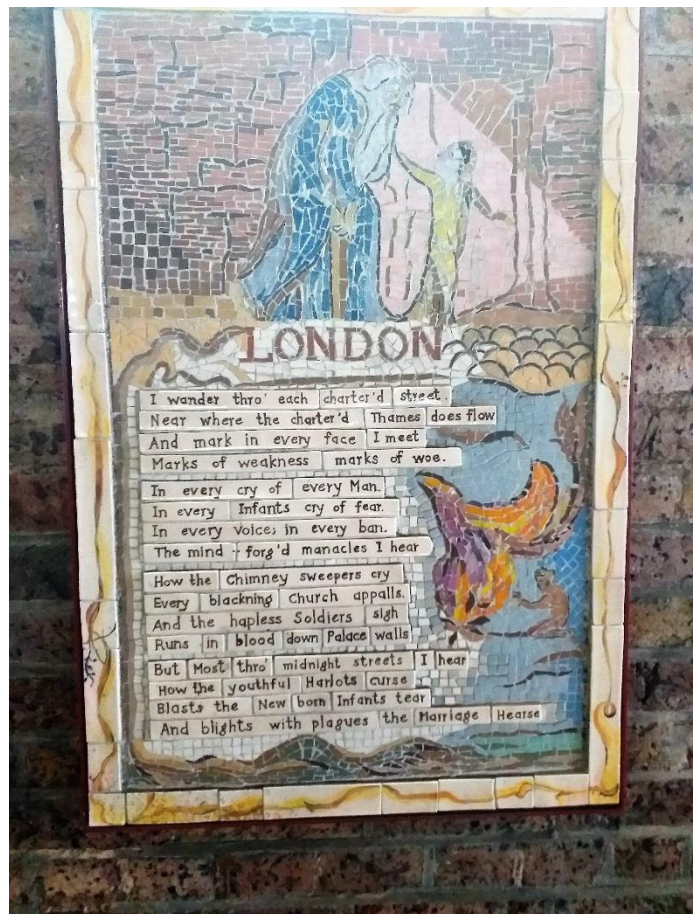 LONDON
I wander thro' each charter'd street.
Near where the charter'd Thames does flow
And mark in every face I meet
Marks of weakness marks of woe.
In every cry of every Man.
In every Infants cry of fear.
In every voice; in every ban.
The mind-forg'd manacles I hear
How the Chimney sweepers cry
Every blackning Church appalls.
And the hapless Soldiers sigh
Runs in blood down Palace walls
But Most thro' midnight streets I hear
How the youthful Harlots curse
Blasts the New born Infants tear
And blights with plagues the Marriage Hearse